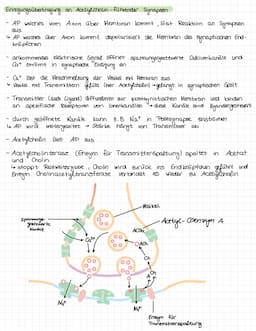 Erregungsübertragung an Acetylcholin-führender Synapsen
- AP welches vom Axon über Membran kommt, löst Reaktion an Synapsen
aus
↳ AP welches über Axon kommt depolarisiert die Membran des synaptischen End-
knöpfchen
- ankommendes elektrische Signal öffnet spannungsgesteuerte Calciumkanäle und
Ca²⁺ strömt in synaptische Endigung ein
- Ca²⁺ löst die Verschmelzung der Vesikel mit Membran aus
↳ Vesikel mit Transmittern gefüllt (hier Acetylcholin) → gelangt in synaptischen Spalt
- Transmitter (Lock Signal) diffundieren zur postsynaptischen Membran und binden
an spezifische Rezeptoren von Ionenkanälen → diese Kanäle sind ligandengesteuert
- durch geöffnete Kanäle kann z.B Na⁺ in Postsynapse einströmen
↳ AP wird weitergeleitet → Stärke hängt von Transmitter ab
- Acetylcholin löst AP aus
- Acetylcholinesterase (Enzym für Transmitterspaltung) spaltet in Acetat
und Cholin
↳ stoppt Reizweitergabe, Cholin wird zurück ins Endknöpfchen geführt und
Enzym Cholinacetyltransferase verbindet es wieder zu Acetylcholin
Vesikel
Acetyl-Coenzym A
Ca²⁺
Ch
Na⁺
Na⁺
Enzym für
Transmitterspaltung